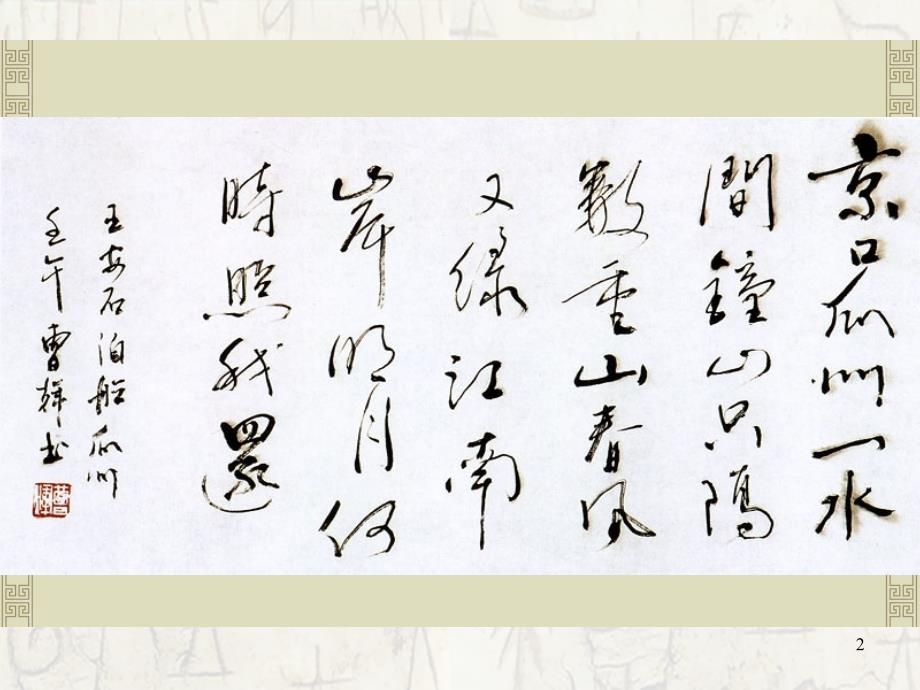 京口瓜州一水
間鐘山只隔
數重山春風
又綠江南
岸明月何
時照我還
王安石泊船瓜州
壬午曹輝书
2